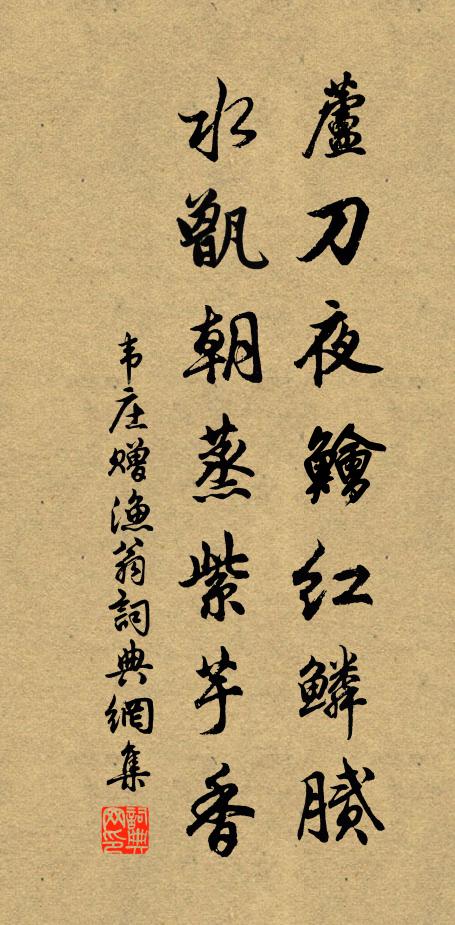 蘆刀夜鱠紅鱗膩
水甑朝蒸紫芋香
韦庄贈漁翁詞典網集
詞典网印